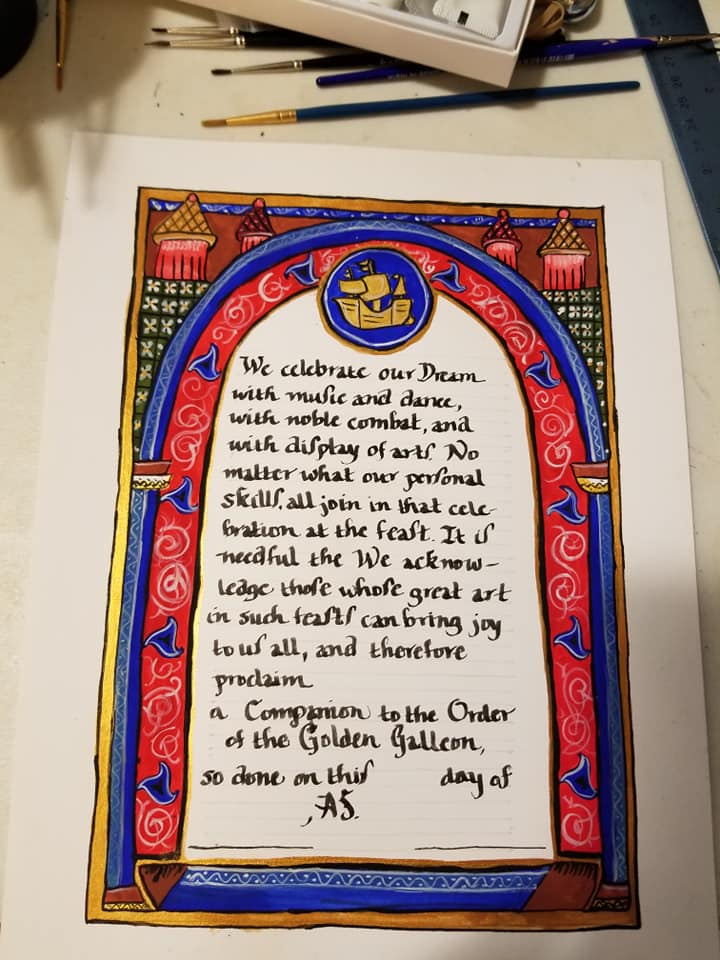 We celebrate our Dream
with muſic and dance,
with noble combat, and
with diſplay of artſ. No
matter what our perſonal
skillſ, all join in that cele-
bration at the feaſt. It iſ
needful the We acknow-
ledge thoſe whoſe great art
in such feaſtſ can bring joy
to uſ all, and therefore
proclaim
a Companion to the Order
of the Golden Galleon,
so done on thiſ day of
, AS.
27 26 25 24